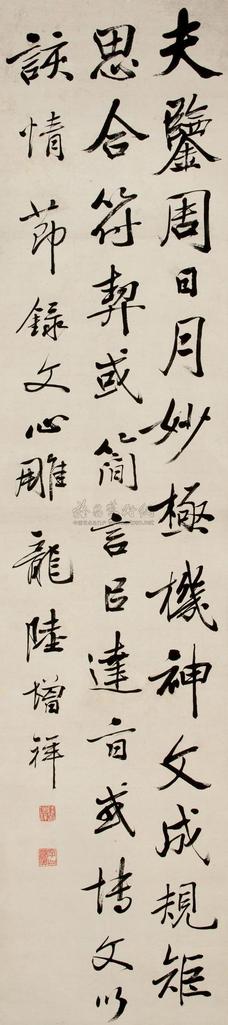 夫鑒周日月妙極機神文成規矩
思合符契或簡言以達旨或博文以
該情 節錄文心雕龍 陸增祥